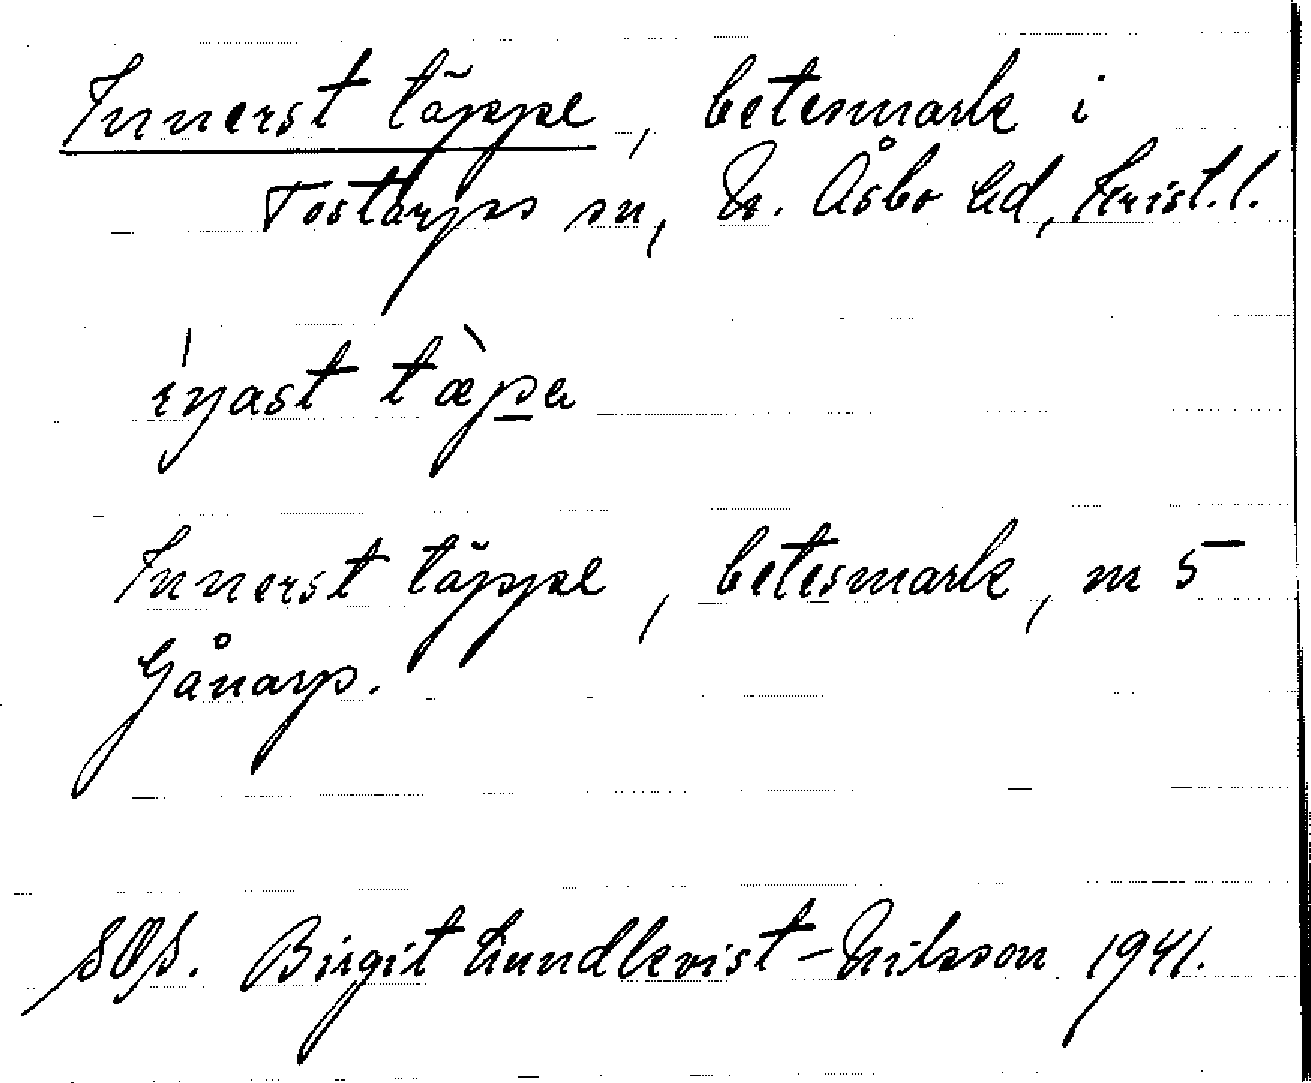 Innerst täppe, betesmark i
Tostarps sn, N. Åsbo hd, Krist. l.
ínast tæ̀pa
Innerst täppe, betesmark, m 5
Gånarp.
SOS. Birgit Lundkvist-Nilsson 1941.